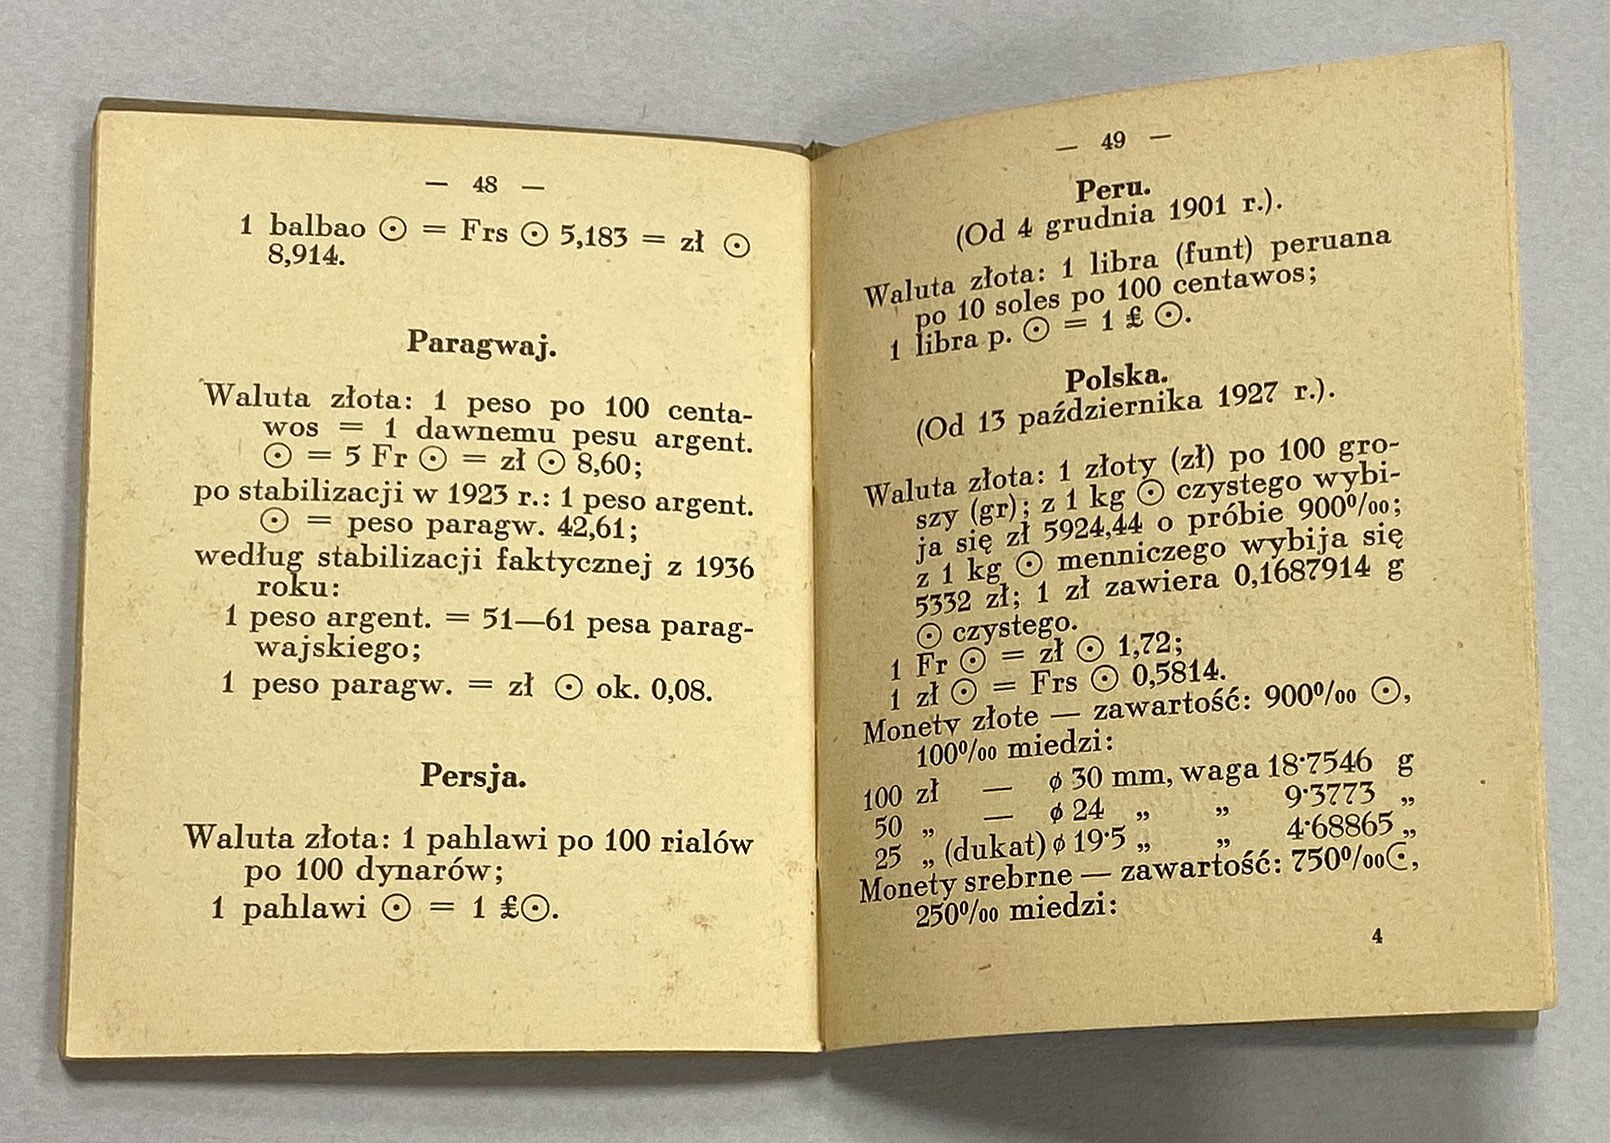 — 48 —
1 balbao ☉ = Frs ☉ 5,183 = zł ☉
8,914.
Paragwaj.
Waluta złota: 1 peso po 100 centa-
wos = 1 dawnemu pesu argent.
☉ = 5 Fr ☉ = zł ☉ 8,60;
po stabilizacji w 1923 r.: 1 peso argent.
☉ = peso paragw. 42,61;
według stabilizacji faktycznej z 1936
roku:
1 peso argent. = 51—61 pesa parag-
wajskiego;
1 peso paragw. = zł ☉ ok. 0,08.
Persja.
Waluta złota: 1 pahlawi po 100 rialów
po 100 dynarów;
1 pahlawi ☉ = 1 £☉.
— 49 —
Peru.
(Od 4 grudnia 1901 r.).
Waluta złota: 1 libra (funt) peruana
po 10 soles po 100 centawos;
1 libra p. ☉ = 1 £ ☉.
Polska.
(Od 13 października 1927 r.).
Waluta złota: 1 złoty (zł) po 100 gro-
szy (gr); z 1 kg ☉ czystego wybi-
ja się zł 5924,44 o próbie 900‰;
z 1 kg ☉ menniczego wybija się
5332 zł; 1 zł zawiera 0,1687914 g
☉ czystego.
1 Fr ☉ = zł ☉ 1,72;
1 zł ☉ = Frs ☉ 0,5814.
Monety złote — zawartość: 900‰ ☉,
100‰ miedzi:
100 zł — ϕ 30 mm, waga 18·7546 g
50 „ — ϕ 24 „ „ 9·3773 „
25 „ (dukat) ϕ 19·5 „ „ 4·68865 „
Monety srebrne — zawartość: 750‰☾,
250‰ miedzi:
4